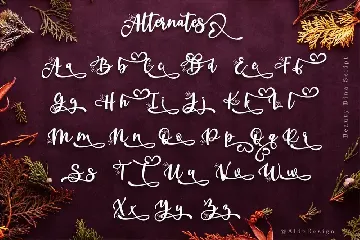 Alternates
Aa Bb Cc Dd Ee Ff
Gg Hh Ii Jj Kk Ll
Mm Nn Oo Pp Qq Rr
Ss Tt Uu Vv Ww
Xx Yy Zz
Beauty Dina Script